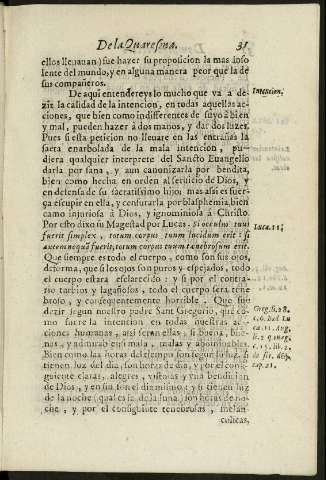 De la Quaresma. 31
ellos lleuauan) fue hazer su proposicion la mas inso
lente del mundo, y en alguna manera peor que la de
sus compañeros.
De aqui entendereys lo mucho que va a de-
zir la calidad de la intencion, en todas aquellas ac-
ciones, que bien como indifferentes de suyo â bien
y mal, pueden hazer â dos manos, y dar dos luzes.
Pues si esta peticion no lleuare en las entrañas la
saeta enarbolada de la mala intencion, pu-
diera qualquier interprete del Sancto Euangelio
darla por sana, y aun canonizarla por bendita,
bien como hecha en orden al seruicio de Dios, y
en defensa de su sacratissimo hijo: mas assi es fuer-
ça escupir en ella, y censurarla por blasphemia, bien
camo injuriosa â Dios, y ignominiosa â Christo.
Por esto dixo su Magestad por Lucas. si oculus tuus
fuerit simplex, totum corpus tuum lucidum erit: si
autem nequã fuerit, totum corpus tuum tenebrosum erit.
Que siempre es todo el cuerpo, como son sus ojos,
de forma, que si los ojos son puros y espejados, todo
el cuerpo estara esclarecido: y si por el contra-
rio turbios y lagañosos, todo el cuerpo sera tene
broso, y consequentemente horrible. Que fue
dezir segun nuestro padre San Gregorio, que co-
mo fuere la intencion en todas nuestras ac-
ciones humanas, assi seran ellas, si buena, bue-
nas, y admirables: si mala, malas y abominables.
Bien como las horas del tiempo son segun su luz, si
tienen luz del dia, son horas de dia, y por el consi-
guiente claras, alegres, vistosas y vna bendicion
de Dios, y en fin son el dia mismo: y si tienen luz
de la noche (qual es la de la luna) son horas de no-
che, y por el consiguinte tenebrosas, melan
colicas,
Intencion.
Luca. 11.
Greg. li. 28.